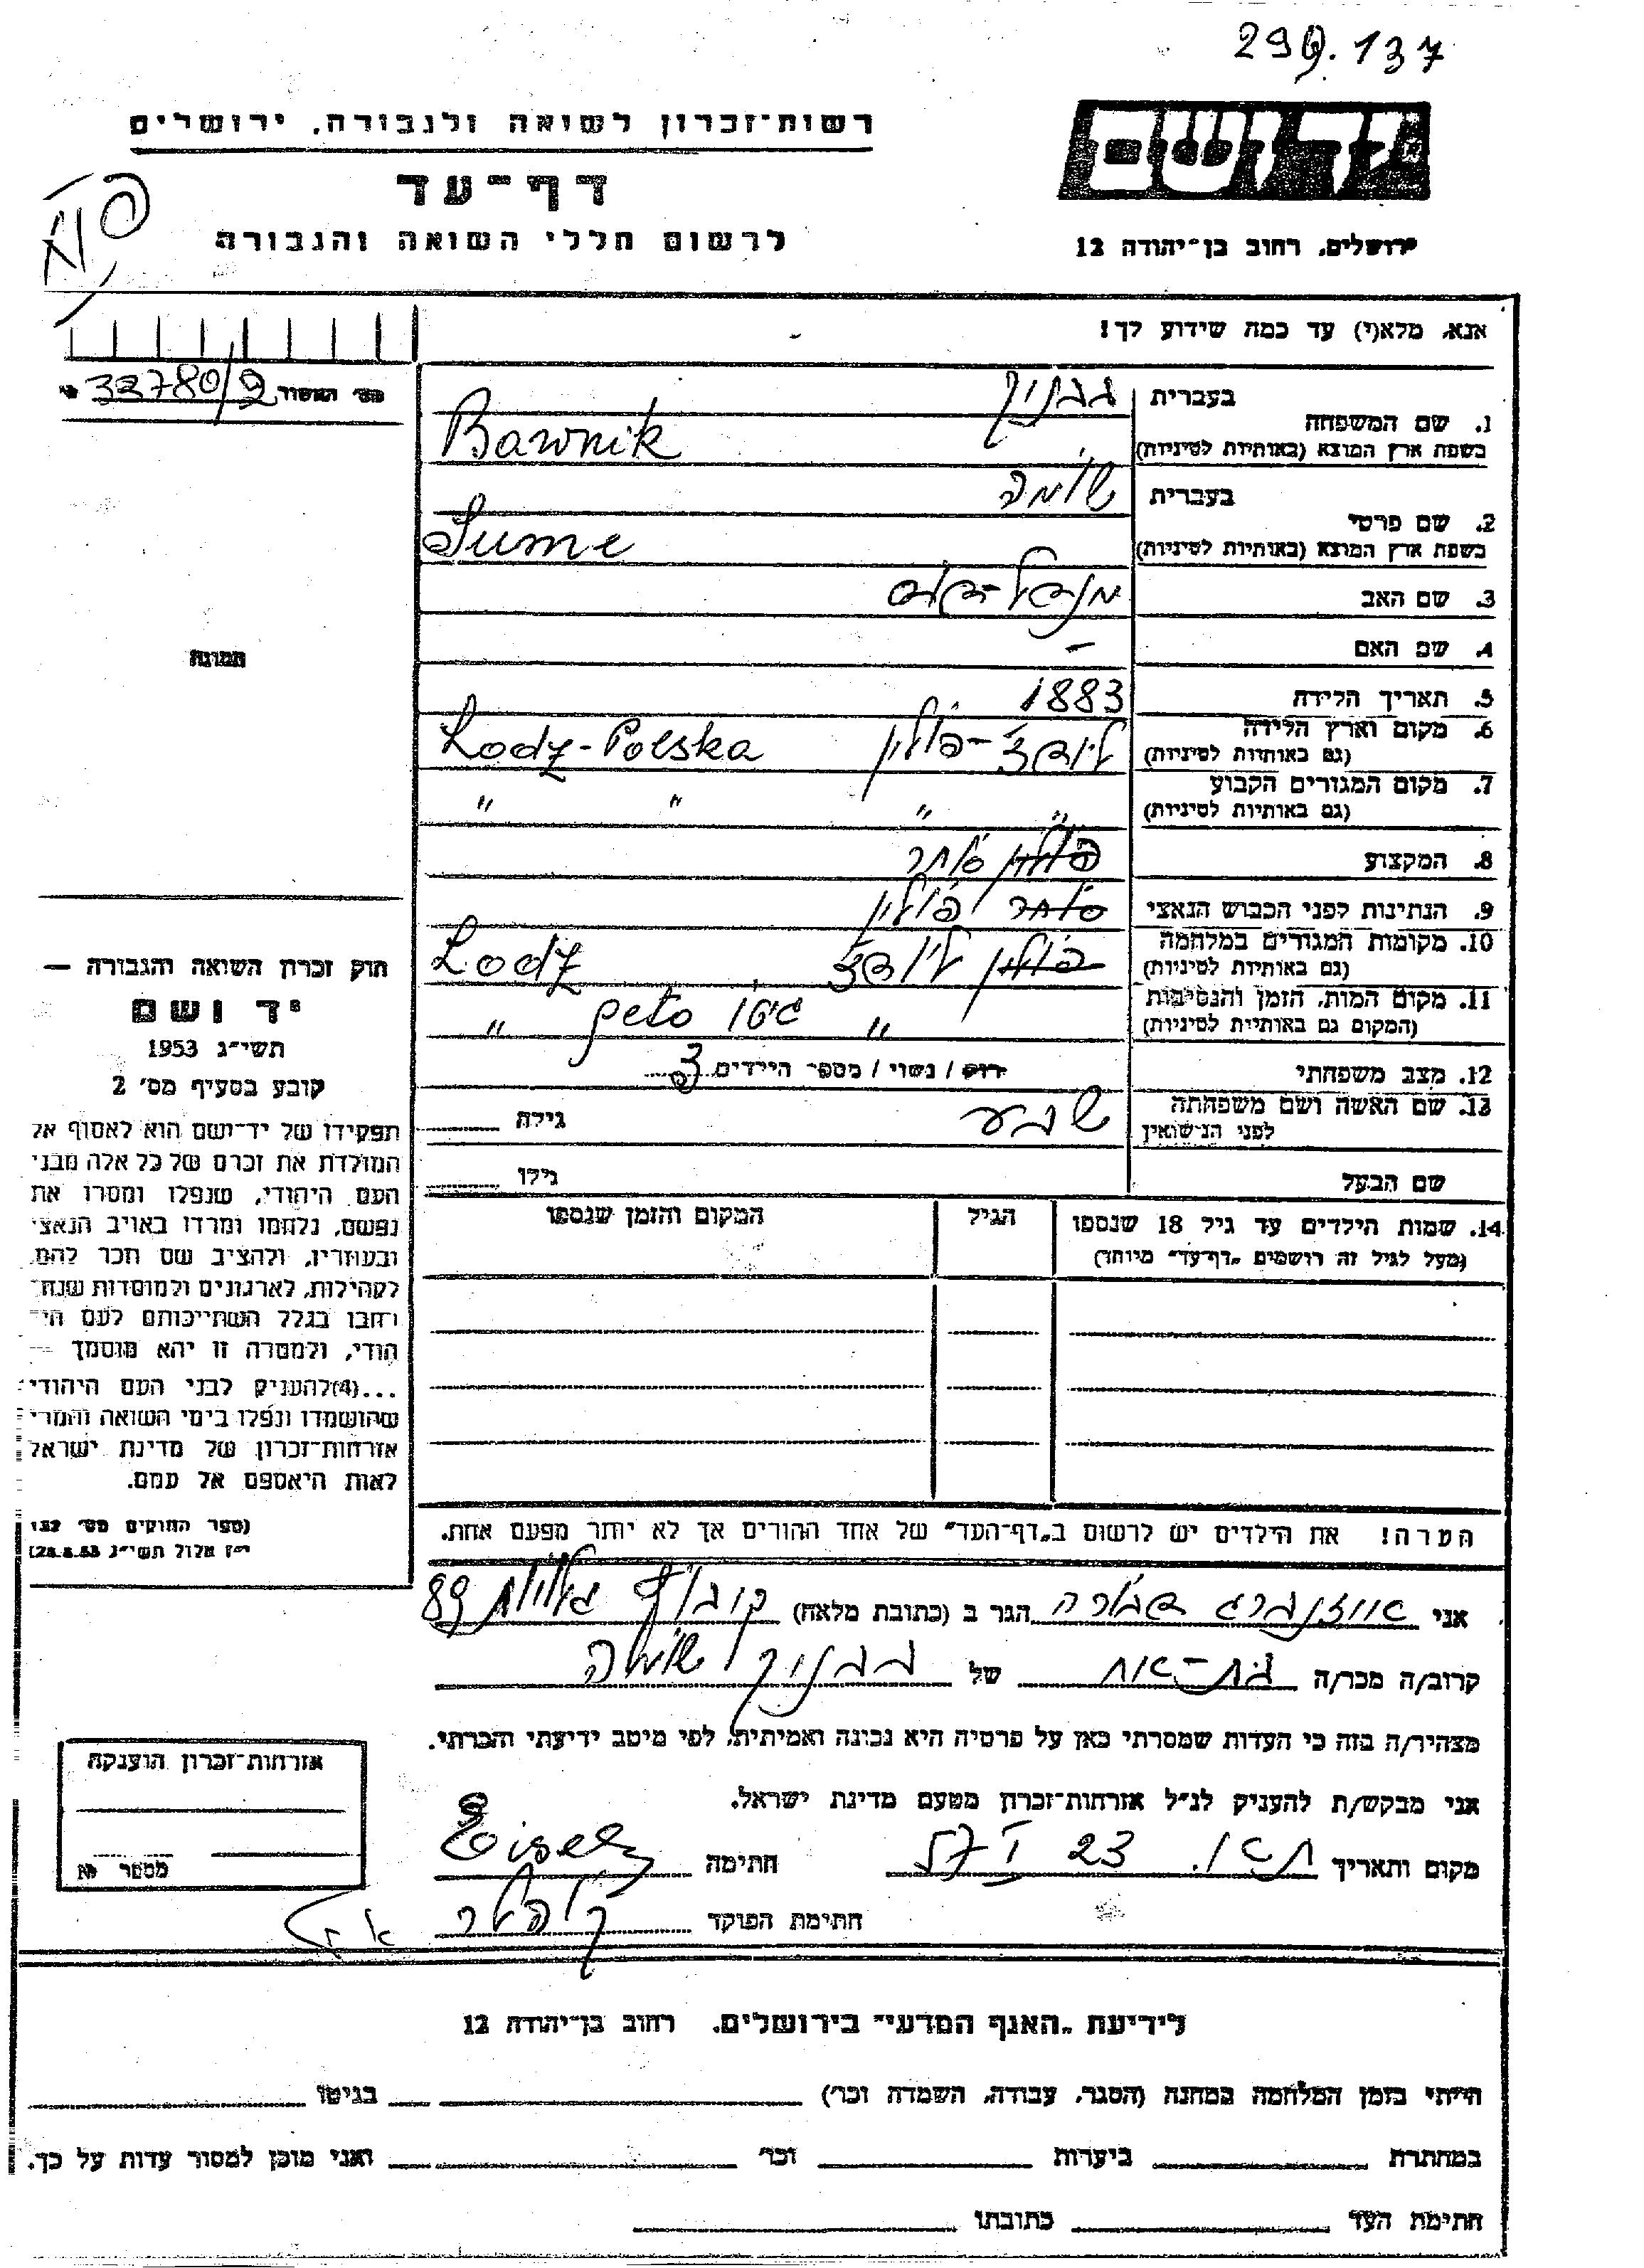 299.137
רשות־זכרון לשואה ולגבורה, ירושלים
דף־עד
לרשום חללי השואה והגבורה
יד ושם
ירושלים, רחוב בן־יהודה 12
אנא, מלא(י) עד כמה שידוע לך!
מס׳ האשור 33780/9
1. שם המשפחה
בעברית בבניק
בשפת ארץ המוצא (באותיות לטיניות) Bawnik
2. שם פרטי
בעברית שומה
בשפת ארץ המוצא (באותיות לטיניות) Sume
3. שם האב
4. שם האם -
5. תאריך הלידה 1883
6. מקום וארץ הלידה לודז׳ - פולין Lodz - Polska
(גם באותיות לטיניות)
7. מקום המגורים הקבוע " " " "
(גם באותיות לטיניות)
8. המקצוע פולין סוחר
9. הנתינות לפני הכבוש הנאצי סוחר פולין
10. מקומות המגורים במלחמה פולין לודז׳ Lodz
(גם באותיות לטיניות)
11. מקום המות, הזמן והנסיבות " גיטו geto "
(המקום גם באותיות לטיניות)
12. מצב משפחתי רווק / נשוי / מספר הילדים 3
13. שם האשה ושם משפחתה שבע גילה
לפני הנישואין
שם הבעל גילו
14. שמות הילדים עד גיל 18 שנספו הגיל המקום והזמן שנספו
(מעל לגיל זה רושמים "דף־עד" מיוחד)
תמונה
חוק זכרון השואה והגבורה —
יד ושם
תשי״ג 1953
קובע בסעיף מס׳ 2
תפקידו של יד־ושם הוא לאסוף אל
המולדת את זכרם של כל אלה מבני
העם היהודי, שנפלו ומסרו את
נפשם, נלחמו ומרדו באויב הנאצי
ובעוזריו, ולהציב שם וזכר להם,
לקהילות, לארגונים ולמוסדות שנח־
רבו בגלל השתייכותם לעם הי־
הודי, ולמטרה זו יהא מוסמך —
...(4) להעניק לבני העם היהודי
שהושמדו ונפלו בימי השואה והמרי
אזרחות־זכרון של מדינת ישראל
לאות היאספם אל עמם.
(ספר החוקים מס׳ 132
י״ז אלול תשי״ג 28.8.53)
הערה! את הילדים יש לרשום ב"דף־העד" של אחד ההורים אך לא יותר מפעם אחת.
אני אייזנברג שרה הגר ב (כתובת מלאה) גלויות 89
קרוב/ה מכר/ה בת-אח של בבניק שומה
מצהיר/ה בזה כי העדות שמסרתי כאן על פרטיה היא נכונה ואמיתית, לפי מיטב ידיעתי והכרתי.
אני מבקש/ת להעניק לנ״ל אזרחות־זכרון מטעם מדינת ישראל.
מקום ותאריך ת״א. 23 I 57 חתימה
חתימת הפוקד
אזרחות־זכרון הוענקה
מספר
לידיעת "האגף המדעי" בירושלים, רחוב בן־יהודה 12
הייתי בזמן המלחמה במחנה (הסגר, עבודה, השמדה וכו׳) בגיטו
במחתרת ביערות וכו׳ ואני מוכן למסור עדות על כך.
חתימת העד כתובתו